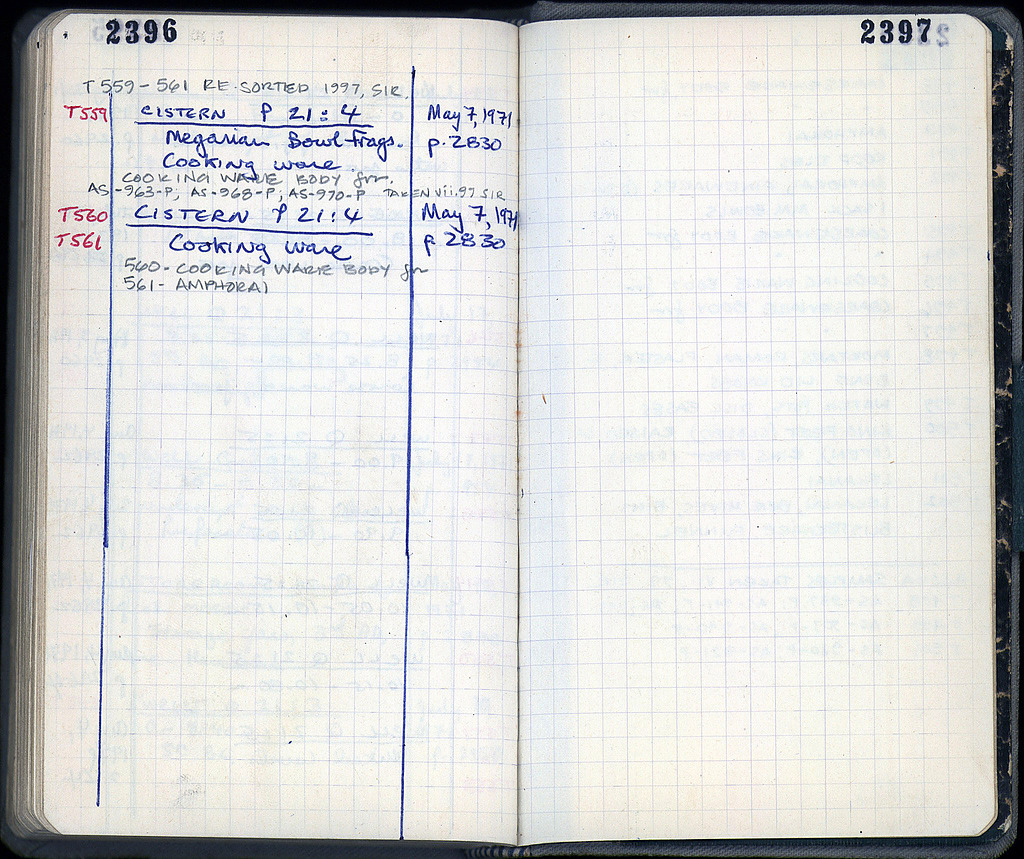 2396
T559-561 RE-SORTED 1997, SIR.
T559 CISTERN P 21:4 May 7, 1971
Megarian Bowl frags. p. 2830
Cooking ware
COOKING WARE BODY frr.
AS-963-P; AS-968-P; AS-970-P TAKEN vii.97 SIR
T560 CISTERN P 21:4 May 7, 1971
T561 Cooking ware p. 2830
560- COOKING WARE BODY frr
561- AMPHORAI
2397